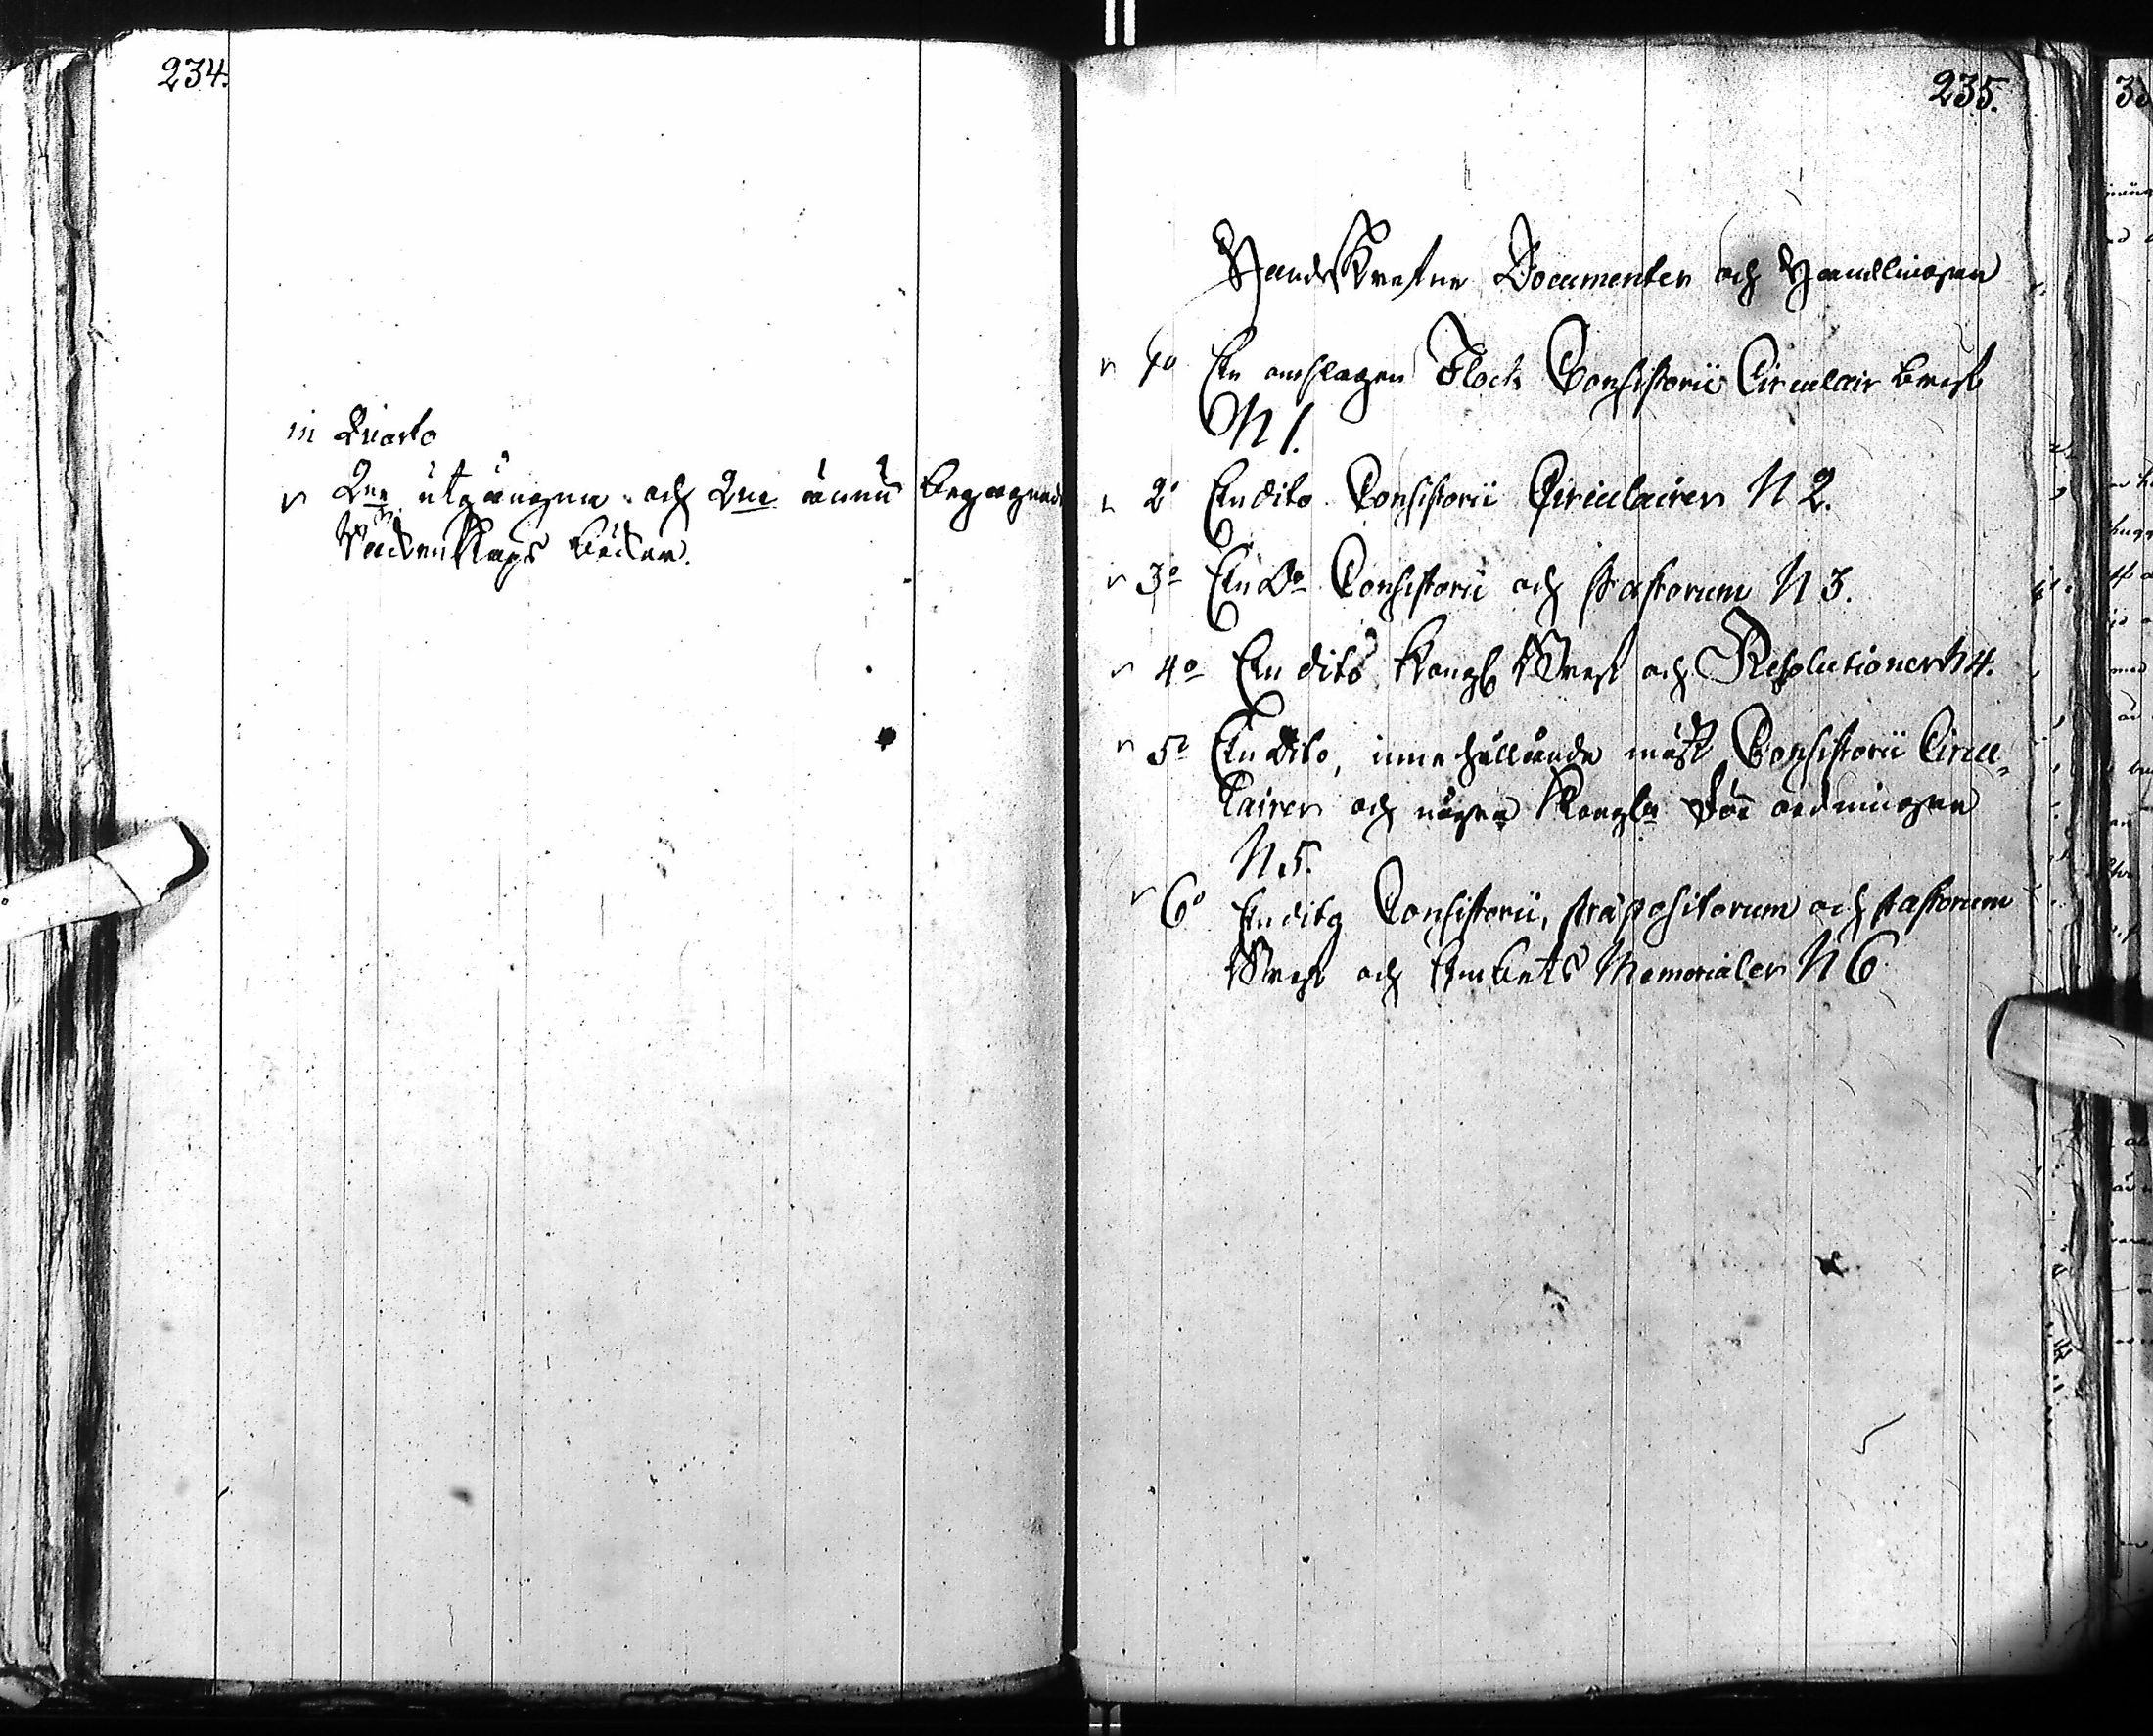 234.
in Quarto
2ne utgångne och 2ne ännu begagnade
Räckenskaps böcker.
235.
Handskrefne Documenter och Handlingar
1o En omslagen Flock Consistorii Circulair bref
N 1.
2o En dito Consistorii Circulairer N 2.
3o En Do Consistorii och Pastorum N 3.
4o En dito Kongl Bref och Resolutioner N 4.
5o En dito, innehållande mäst Consistorii Circu-
lairer och några Kongla Förordningar
N 5.
6o En dito Consistorii, Præpositorum och Pastorum
Bref och Embets Memorialer N 6